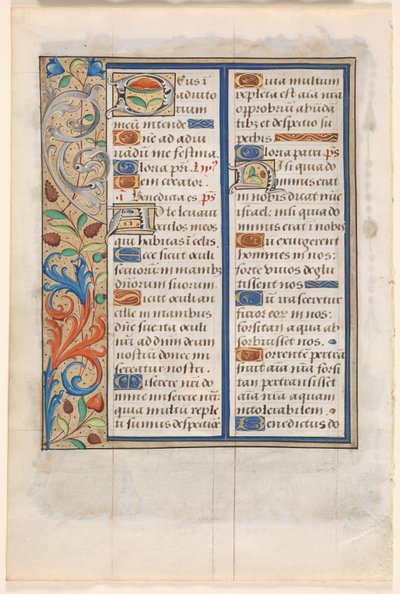 Deus i
adiuto
rium
meũ intende
Dñe ad adiu
uãdũ me festina.
Gloria pr̃i. hy͂s
Mem creator.
Benedicta es. ps̃
Ad te leuaui
oculos meos
qui habitas i celis.
Ecce sicut oculi
seruorũ in manibꝰ
dñorum suorum.
Sicut oculi an
cille in manibus
dñe sue: ita oculi
nr̃i ad dñm deum
nostrũ donec mi
sereatur nostri.
Miserere nr̃i do
mine miserere nr̃i:
quia multũ reple
ti sumus despectiõe
Quia multum
repleta est aĩa nr̃a
opprobriũ abũdã
tibꝫ et despectio su
perbis.
Gloria patri. ps̃
Nisi quia do
minus erat
in nobis dicat nũc
israel: nisi quia do
minus erat ĩ nobis
Cũ exurgerent
homines in nos:
forte viuos deglu
tissent nos
Cũ irasceretur
furor eorũ in nos:
forsitan aqua ab
sorbuisset nos.
Torrentẽ pertrã
siuit aĩa nr̃a: forsi
tan pertransisset
aĩa nr̃a aquam
intolerabilem.
Benedictus do